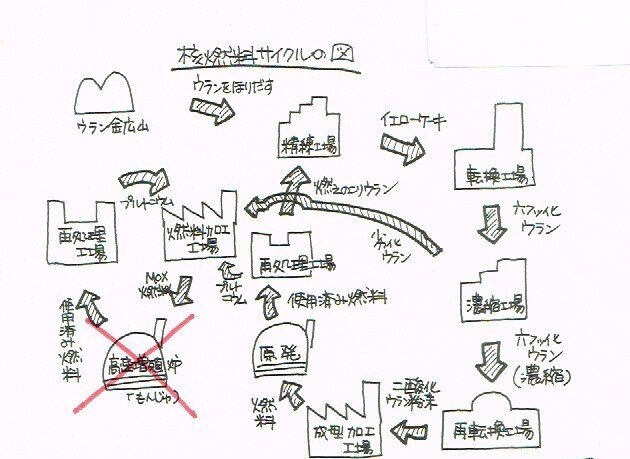 核燃料サイクルの図
ウランをほりだす
ウラン鉱山
精練工場
イエローケーキ
転換工場
六フッ化
ウラン
濃縮工場
六フッ化
ウラン
(濃縮)
再転換工場
二酸化
ウラン粉末
成型加工
工場
燃料
原発
使用済み燃料
再処理工場
燃えのこりウラン
プルト
ニウム
ウラン
燃料加工
工場
プルトニウム
再処理
工場
MOX
燃料
高速増殖炉
「もんじゅ」
使用済み燃料